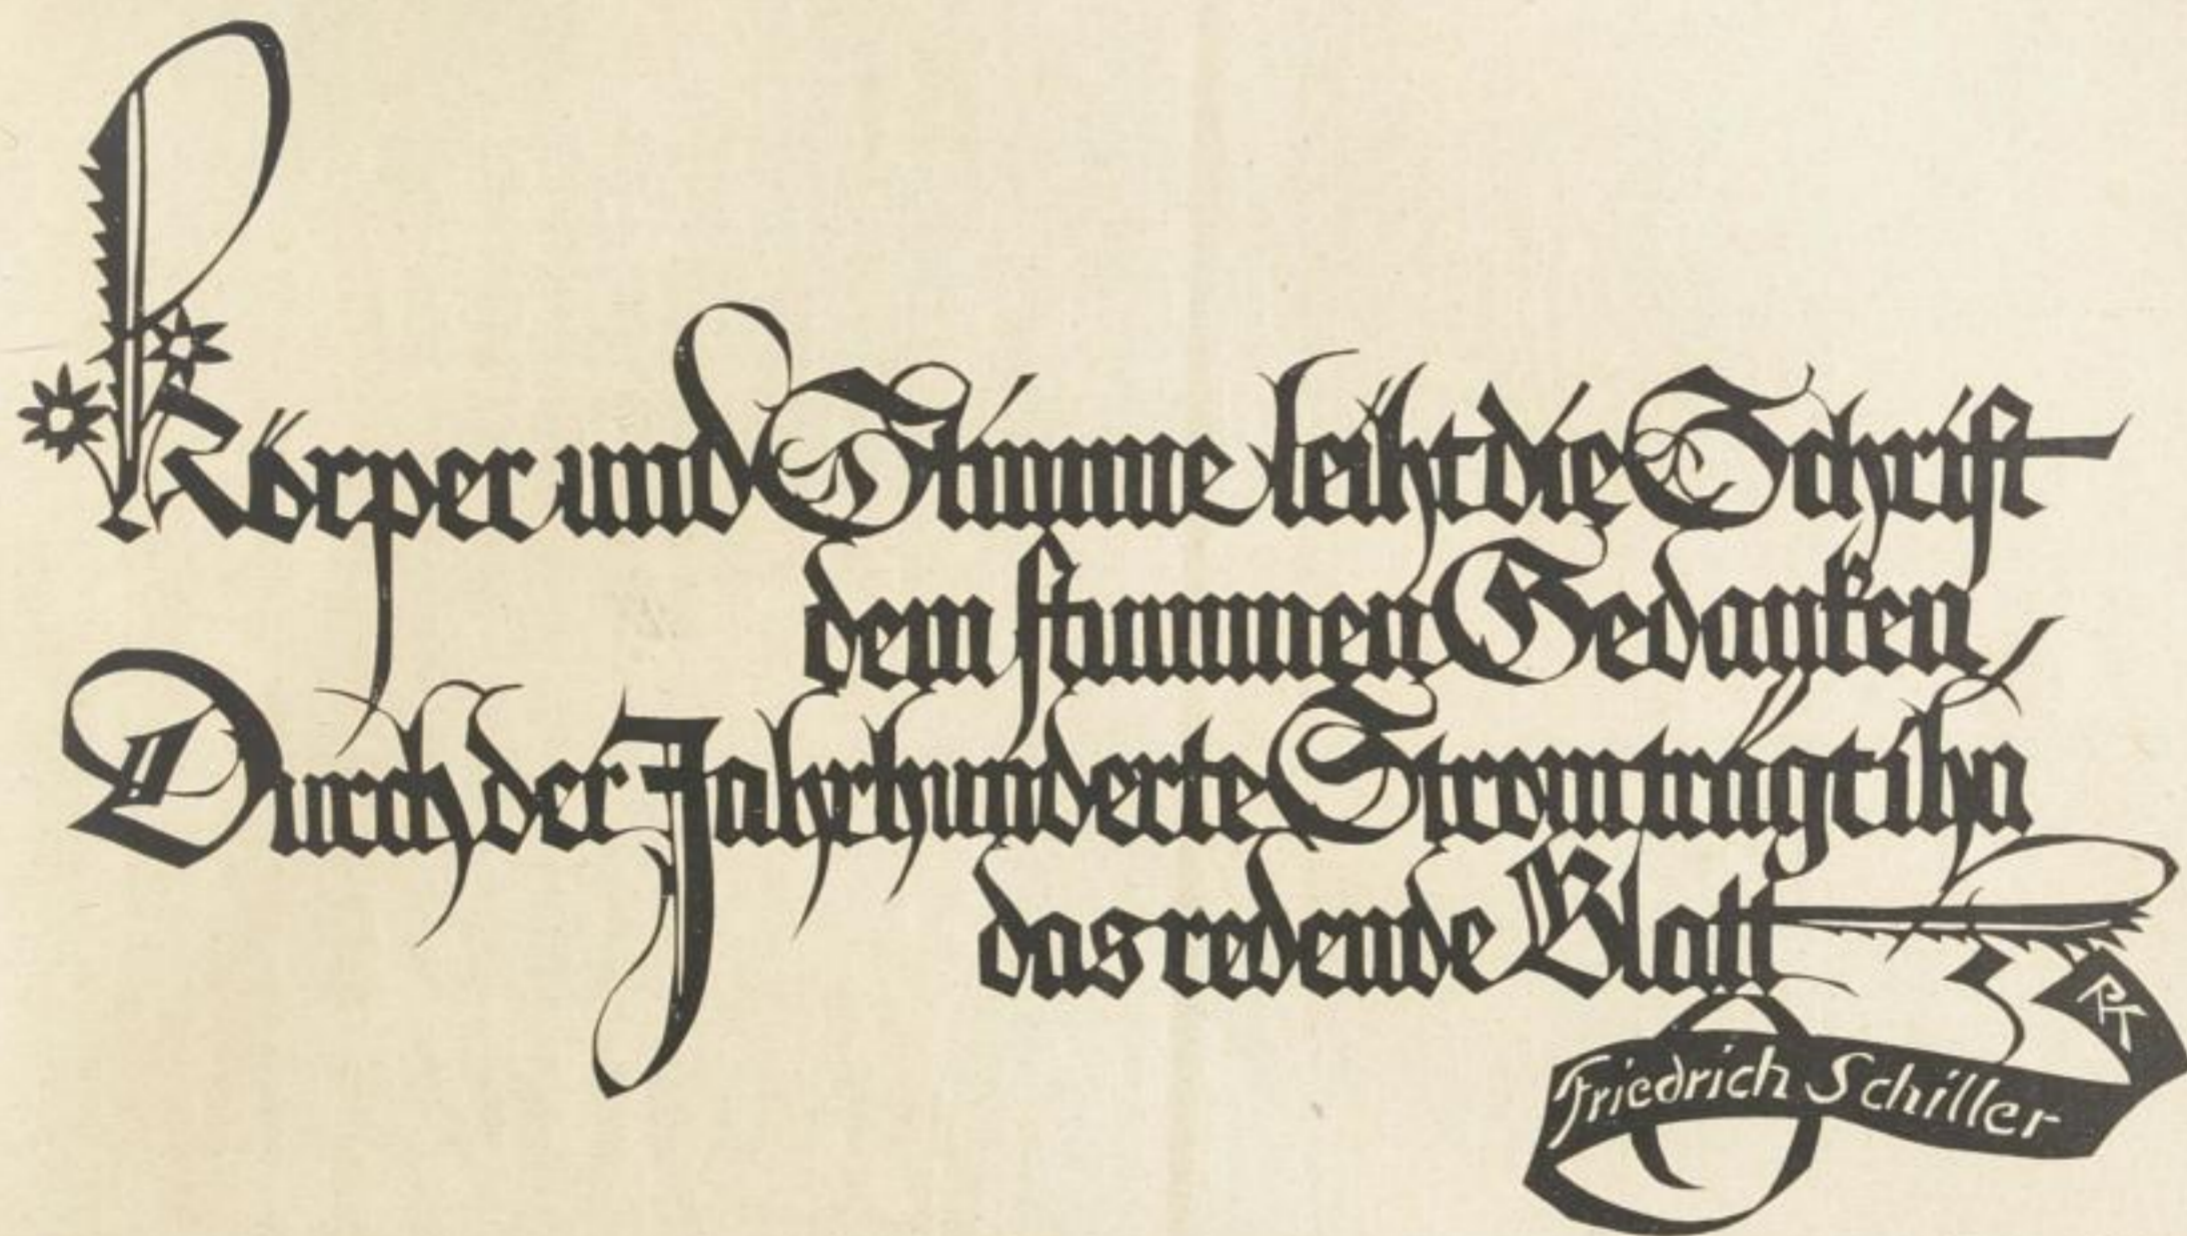 Körper und Stimme leiht die Schrift
dem stummen Gedanken,
Durch der Jahrhunderte Strom trägt ihn
das redende Blatt
RK
Friedrich Schiller